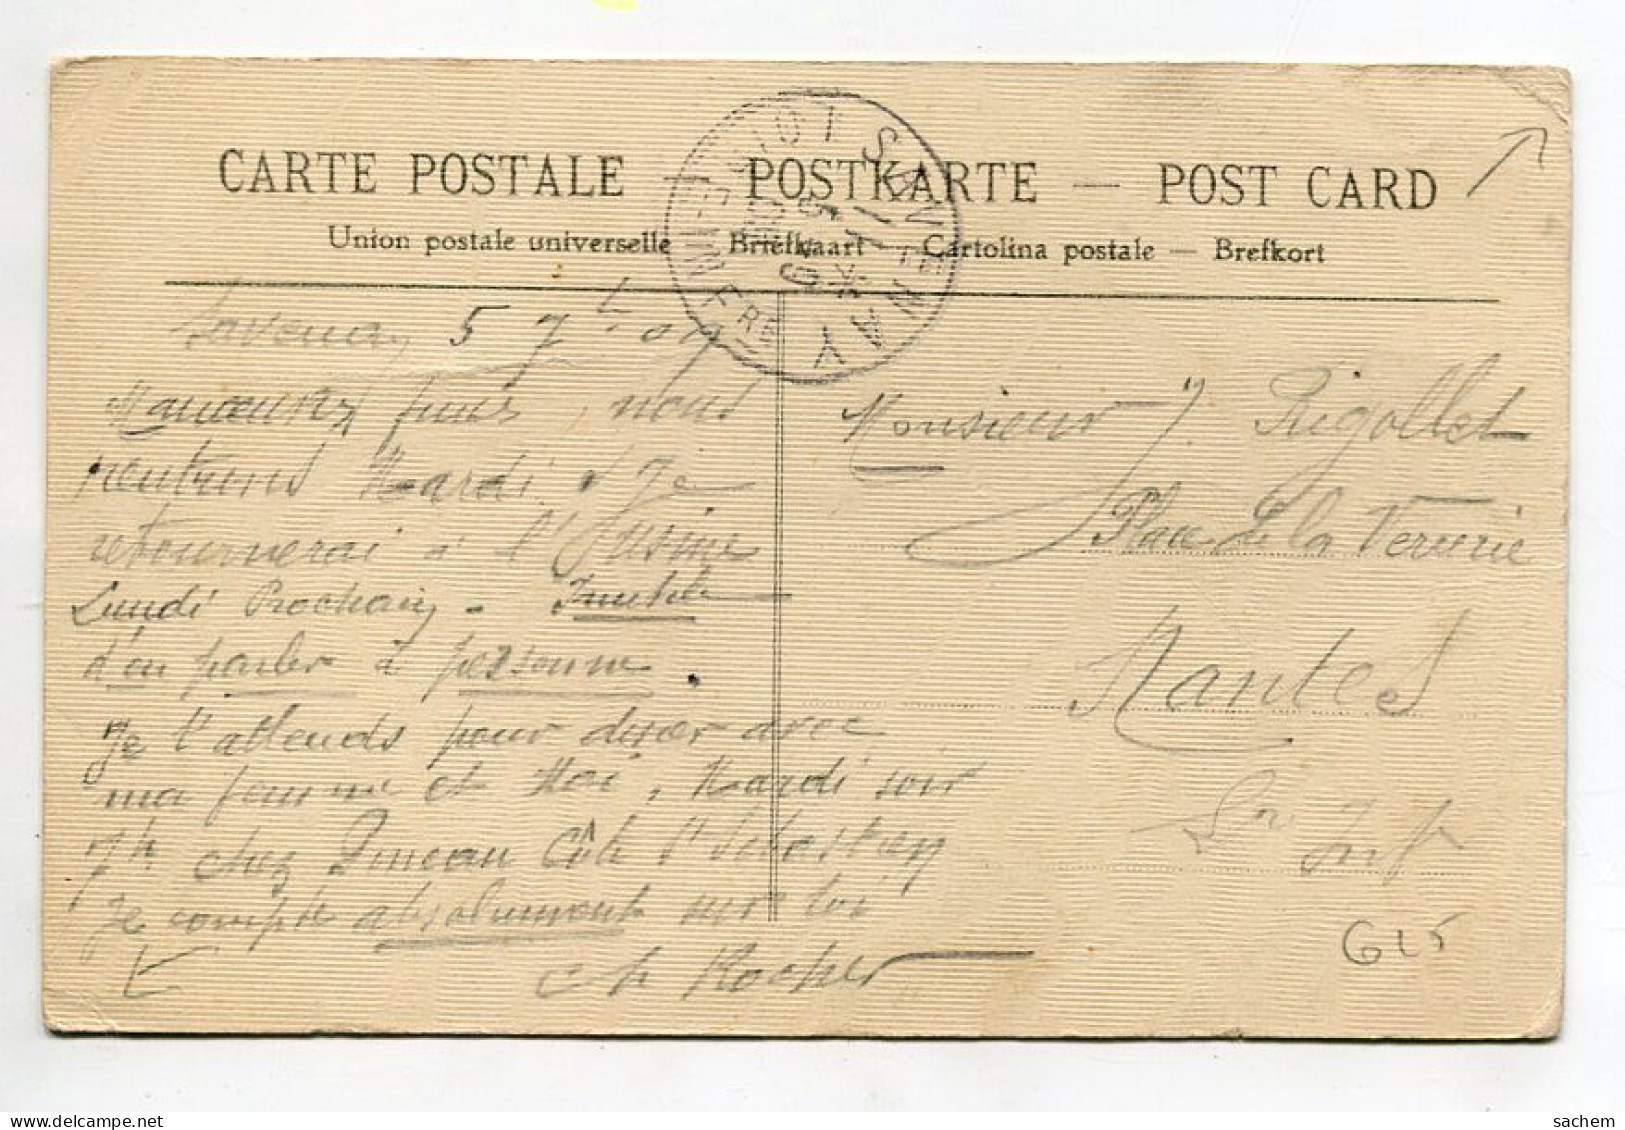 CARTE POSTALE — POSTKARTE — POST CARD
Union postale universelle — Briefkaart — Cartolina postale — Brefkort
SAVENAY
LOIRE INFERRE
5 - 9
09
Savenay 5 7bre 09
Manœuvres finies, nous
rentrons Mardi & je
retournerai à l'Usine
Lundi Prochain - Inutile
d'en parler à personne.
Je t'attends pour diner avec
ma femme et Moi, Mardi soir
7h chez Pineau Côte St Sebastien
Je compte absolument sur toi
Ch Rocher
Monsieur J. Rigollet
Place de la Verrerie
Nantes
Inf
G25
sachem